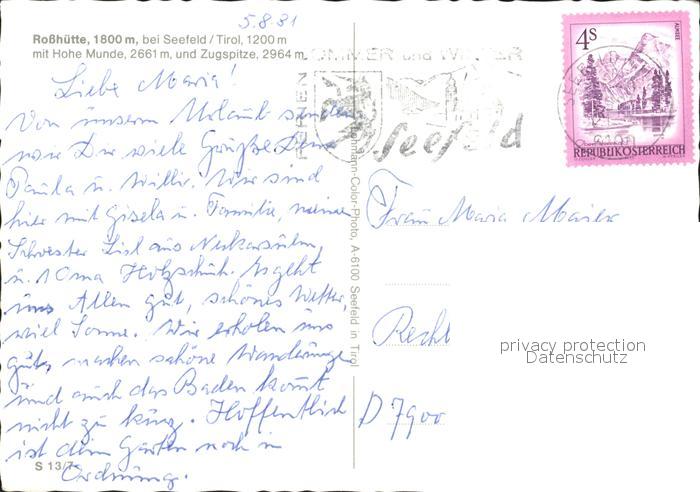 5.8.81
Roßhütte, 1800 m, bei Seefeld / Tirol, 1200 m
mit Hohe Munde, 2661 m, und Zugspitze, 2964 m.
Liebe Maria!
Von unserm Urlaub senden
wir Dir viele Grüße Deine
Paula u. Willi. Wir sind
hier mit Gisela u. Familie, meiner
Schwester Lisl aus Neckarsulm,
u. Oma Holzschuh. Es geht
uns Allen gut, schönes Wetter,
viel Sonne. Wir erholen uns
gut, machen schöne Wanderunge
und auch das Baden kommt
nicht zu kurz. Hoffentlich
ist dein Garten noch in
Ordnung.
S 13/7
-Color-Photo, A-6100 Seefeld in Tirol
FERIEN
SOMMER und WINTER
Seefeld
4S
REPUBLIK ÖSTERREICH
Frau Maria Maier
Recht
privacy protection
Datenschutz
D 7900